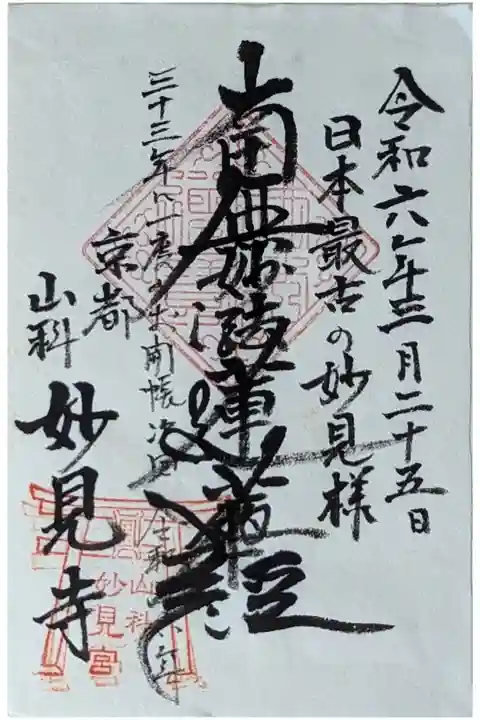 令和六年三月二十五日
日本最古の妙見様
南無妙法蓮華経
三十三年に一度のお開帳次回
令和
京都
山科
妙見寺
山科
妙見宮